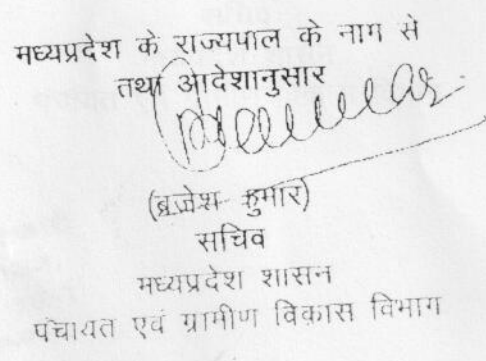 मध्यप्रदेश के राज्यपाल के नाग से
तथा आदेशानुसार
(ब्रजेश कुमार)
सचिव
मध्यप्रदेश शासन
पंचायत एवं ग्रामीण विकास विभाग